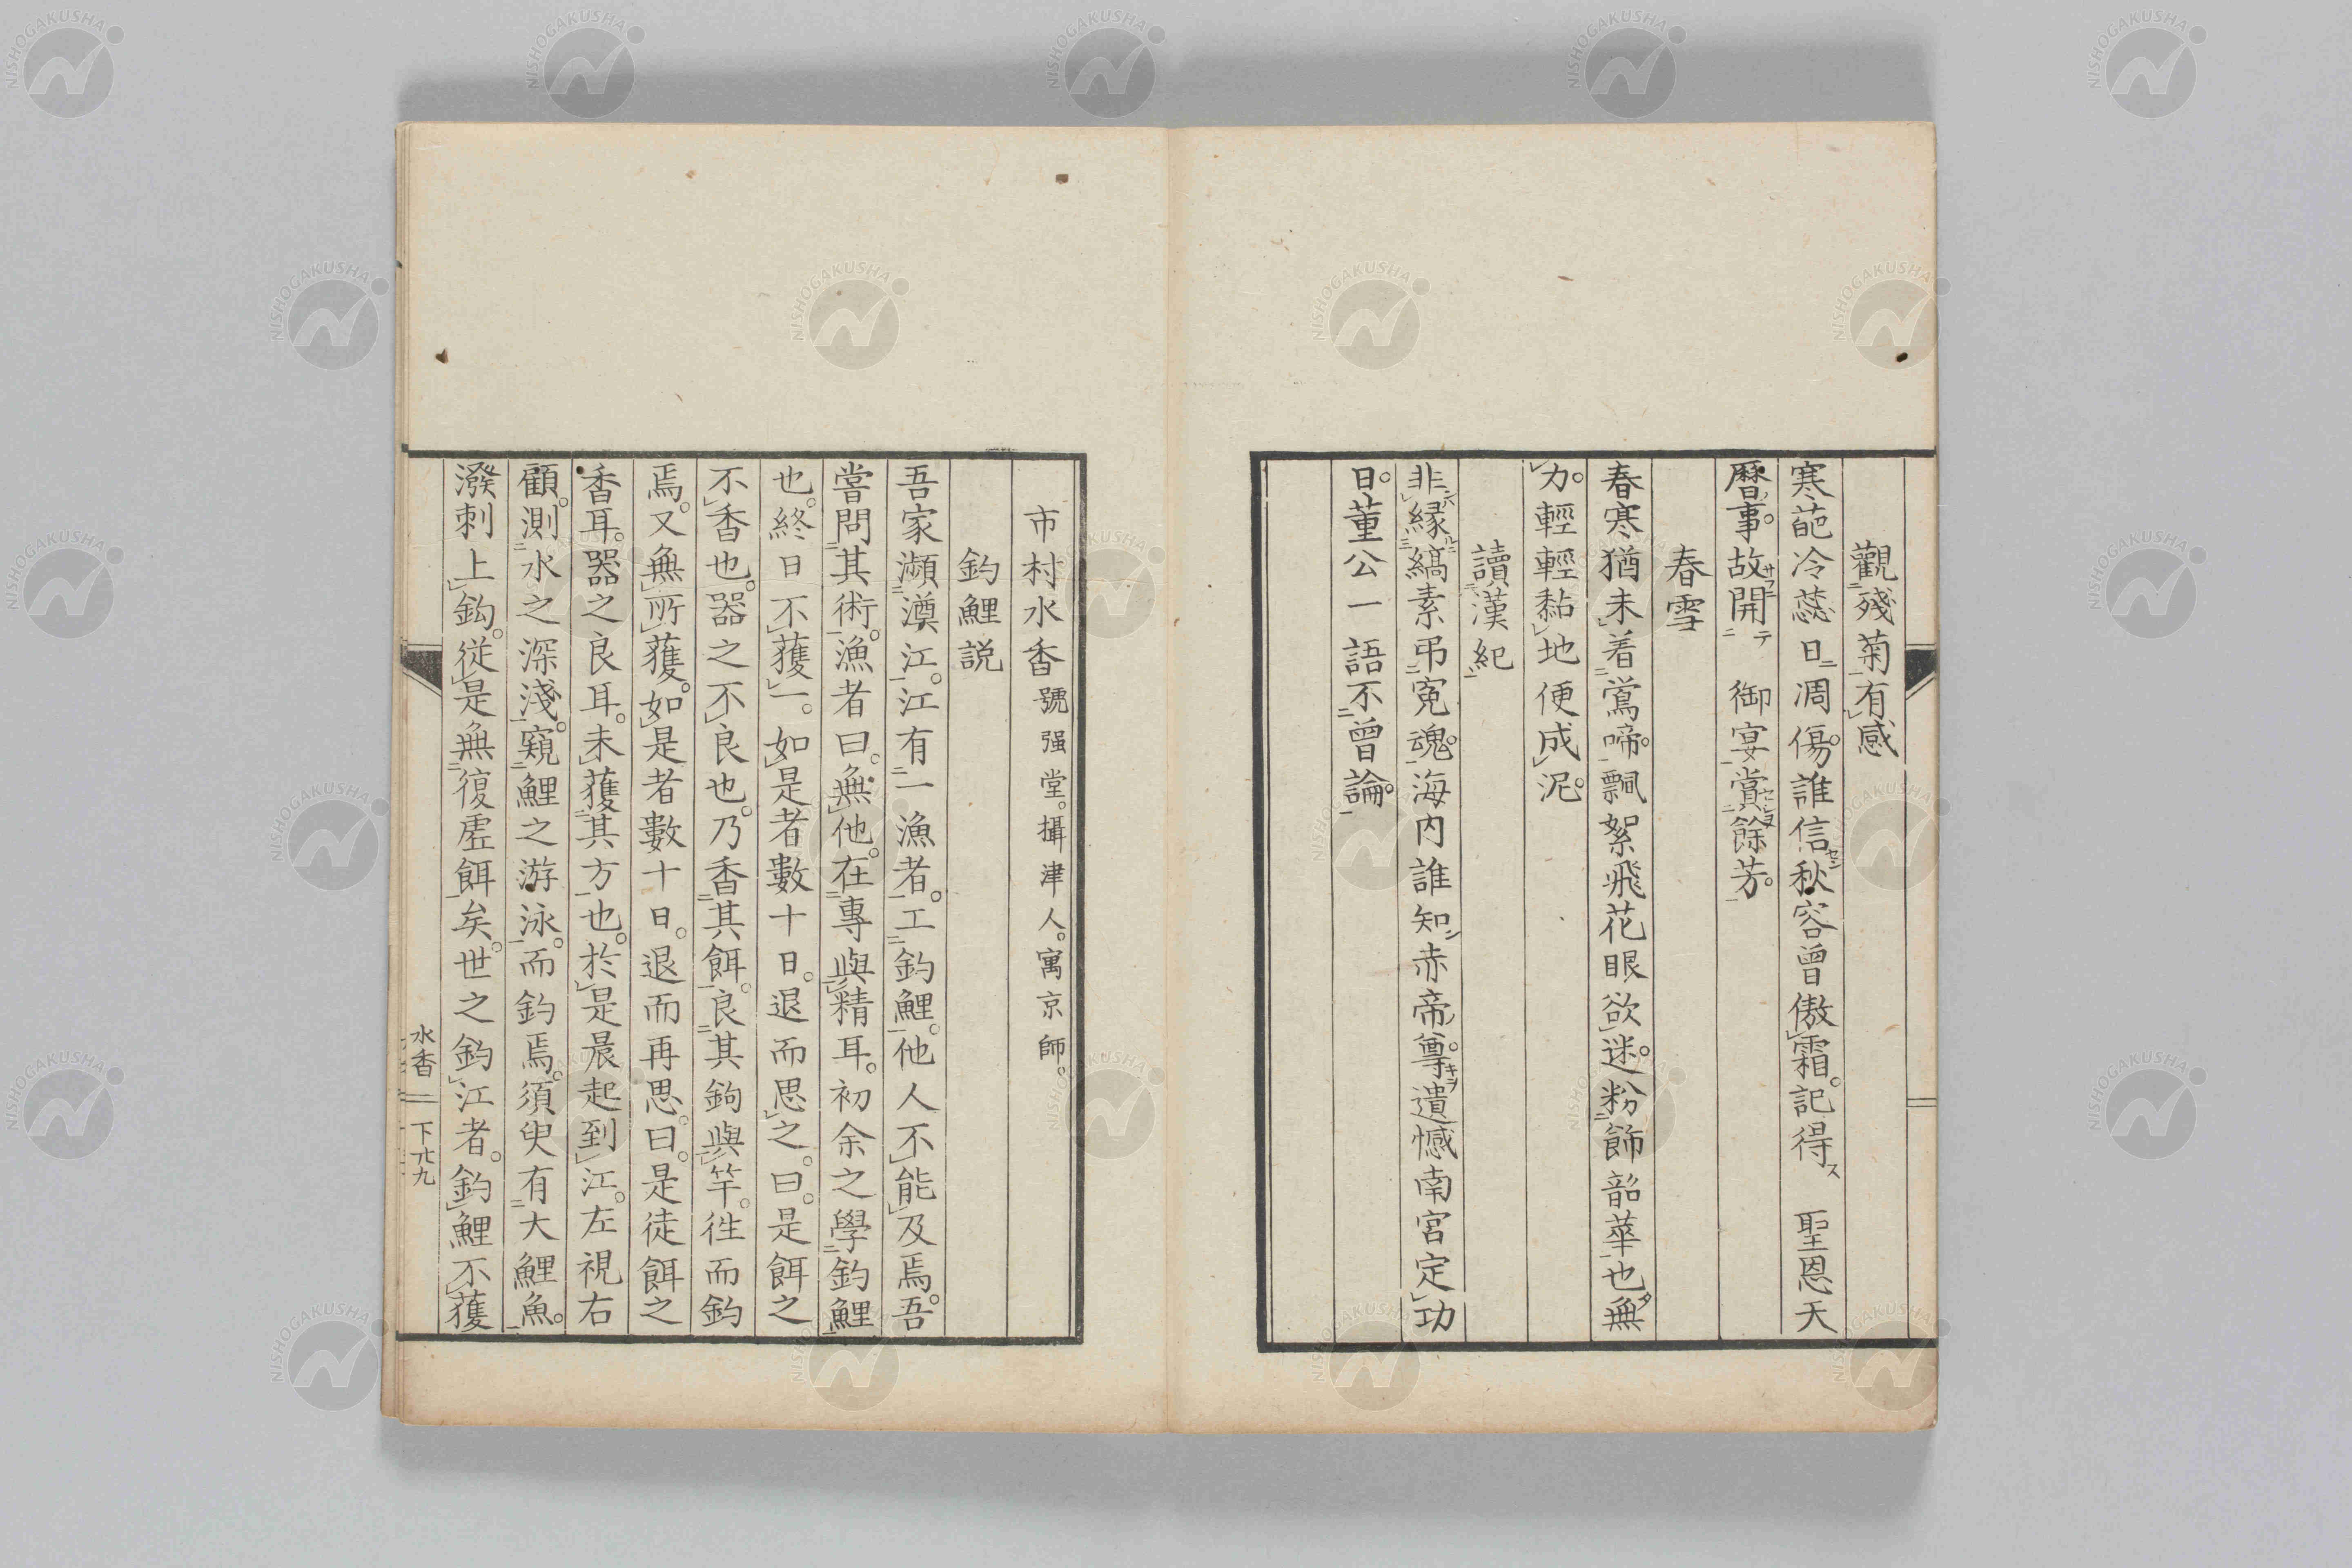 觀殘菊有感
寒葩冷蕊日凋傷。誰信秋容曾傲霜。記得 聖恩天
曆事。故開 御宴賞餘芳。
春雪
春寒猶未着鶯啼。飄絮飛花眼欲迷。粉飾韶華也無
力。輕輕黏地便成泥。
讀漢紀
非緣縞素弔冤魂。海内誰知赤帝尊。遺憾南宮定功
日。董公一語不曾論。
市村水香 號强堂。攝津人。寓京師。
釣鯉説
吾家瀕澳江。江有一漁者。工釣鯉。他人不能及焉。吾
嘗問其術。漁者曰。無他。在專與精耳。初余之學釣鯉
也。終日不獲一。如是者數十日。退而思之。曰。是餌之
不香也。器之不良也。乃香其餌。良其鉤與竿。往而釣
焉。又無所獲。如是者數十日。退而再思。曰。是徒餌之
香耳。器之良耳。未獲其方也。於是晨起到江。左視右
顧。測水之深淺。窺鯉之游泳。而釣焉。須臾有大鯉魚。
潑剌上鉤。從是無復虛餌矣。世之釣江者。釣鯉不獲
水香 下卄九
NISHOGAKUSHA